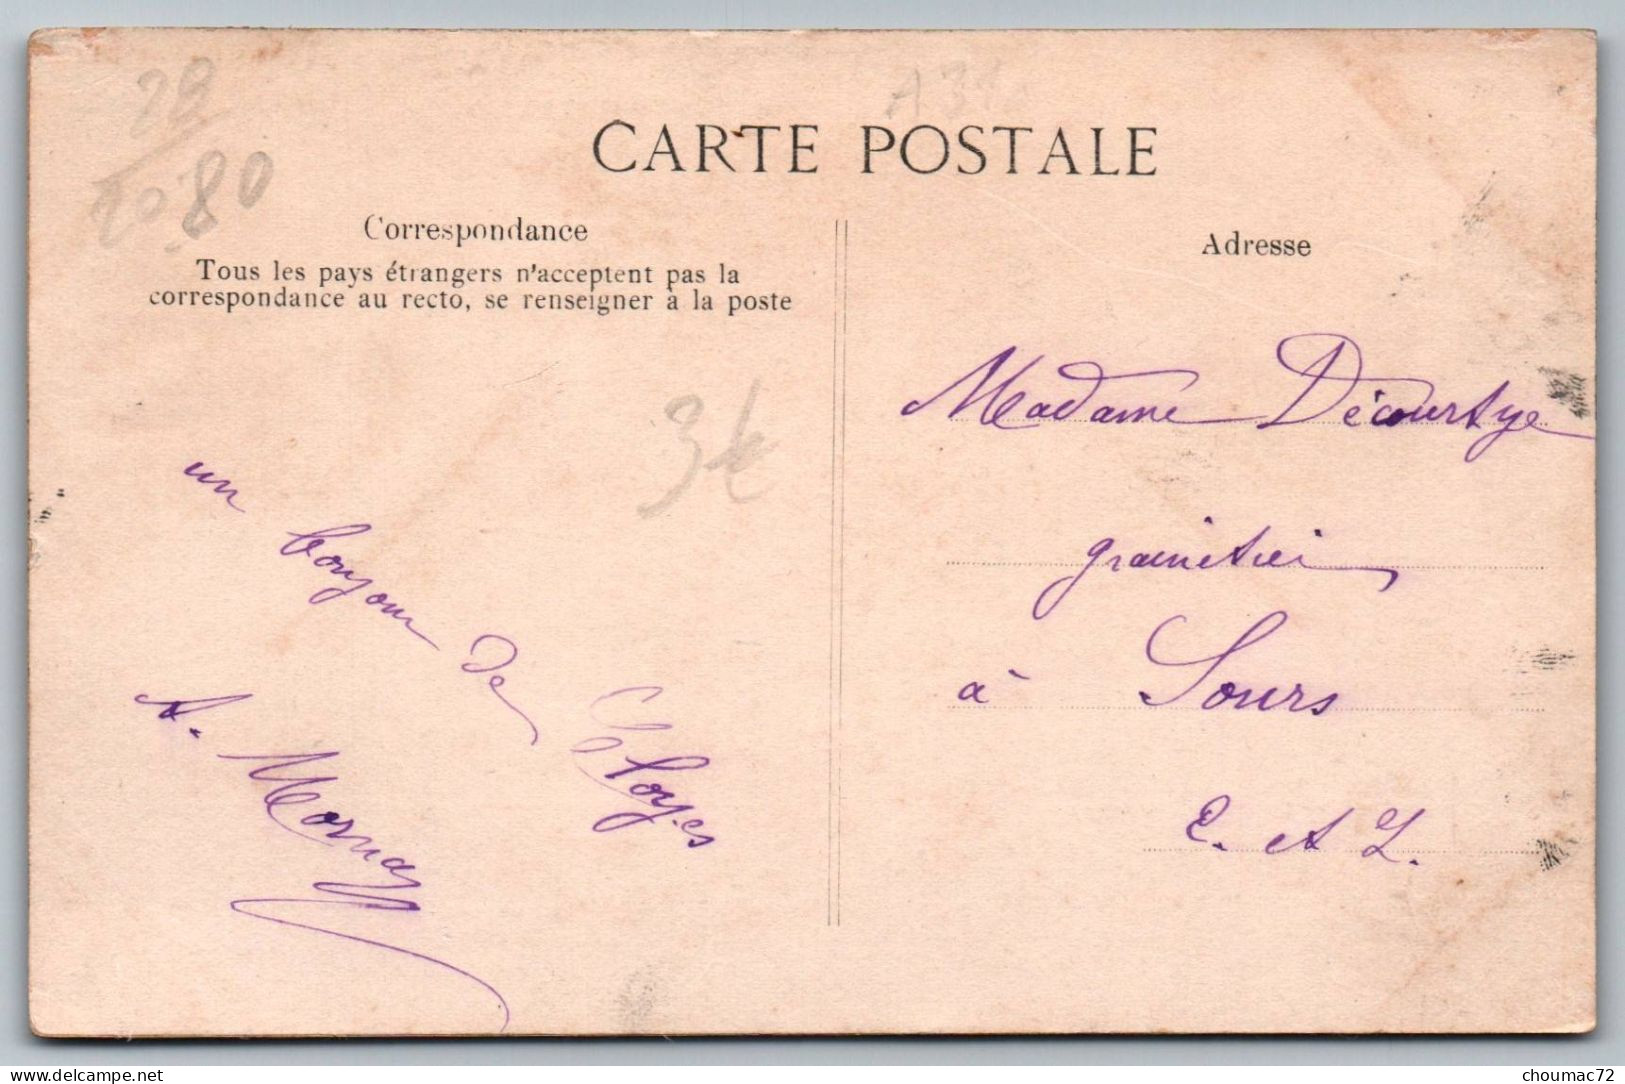 28
20.80
A31
CARTE POSTALE
Correspondance
Tous les pays étrangers n'acceptent pas la
correspondance au recto, se renseigner à la poste
3€
un bonjour de Cloyes
A. Mornay
Adresse
Madame Décourtye
grainetier
à Sours
E. et L.
choumac72